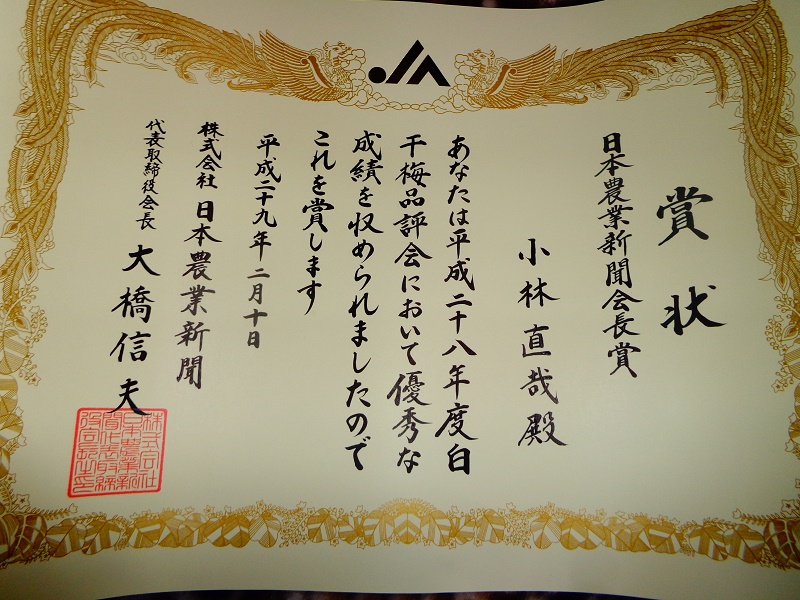 賞状
日本農業新聞会長賞
小林直哉殿
あなたは平成二十八年度白
干梅品評会において優秀な
成績を収められましたので
これを賞します
平成二十九年二月十日
株式会社 日本農業新聞
代表取締役会長 大橋信夫
JA